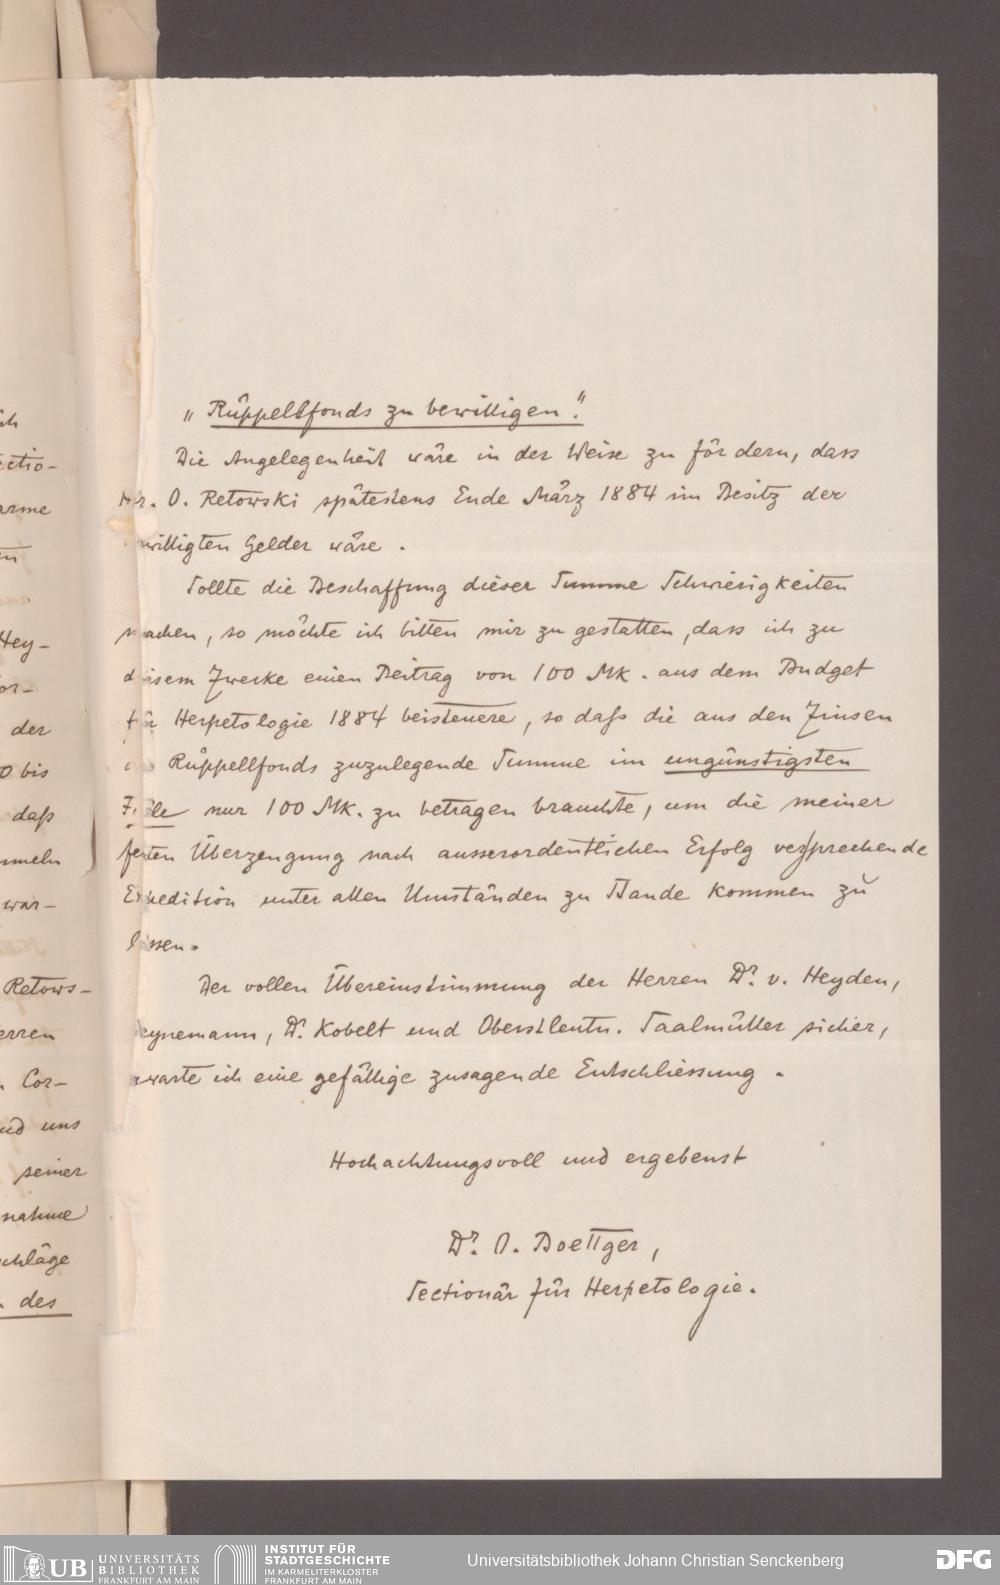 „Rüppellfonds zu bewilligen."
Die Angelegenheit wäre in der Weise zu fördern, dass
Hr. O. Retowski spätestens Ende März 1884 im Besitz der
willigten Gelder wäre.
Sollte die Beschaffung dieser Summe Schwierigkeiten
machen, so möchte ich bitten mir zu gestatten, dass ich zu
diesem Zwecke einen Beitrag von 100 Mk. aus dem Budget
für Herpetologie 1884 beisteuere, so daß die aus den Zinsen
Rüppellfonds zuzulegende Summe im ungünstigsten
Falle nur 100 Mk. zu betragen brauchte, um die meiner
festen Überzeugung nach ausserordentlichen Erfolg versprechende
Expedition unter allen Umständen zu Stande kommen zu
lassen.
Der vollen Übereinstimmung der Herren Dr. v. Heyden,
Heynemann, Dr. Kobelt und Oberstleutn. Saalmüller sicher,
erwarte ich eine gefällige zusagende Entschliessung.
Hochachtungsvoll und ergebenst
Dr. O. Boettger,
Sectionär für Herpetologie.
ich
ectio-
arme
Hey-
or-
der
0 bis
daß
mmeln
war-
Retows-
erren
Cor-
und uns
seiner
nahme
schläge
des
UB UNIVERSITÄTS
BIBLIOTHEK
FRANKFURT AM MAIN
INSTITUT FÜR
STADTGESCHICHTE
IM KARMELITERKLOSTER
FRANKFURT AM MAIN
Universitätsbibliothek Johann Christian Senckenberg
DFG